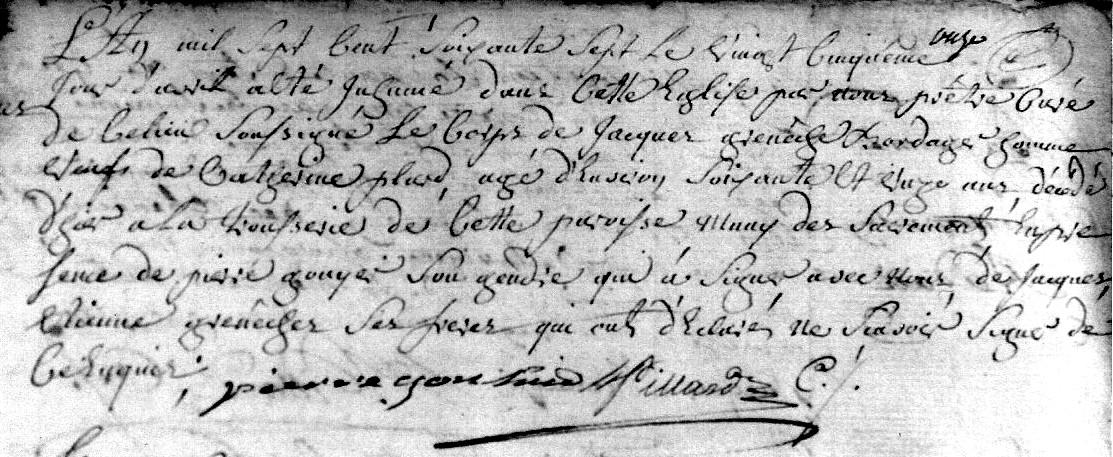 L'An mil Sept Cent Soixante Sept Le vingt Cinquième onze
Jour d'avril a Eté Inhumé dans Cette Eglise par nous prêtre Curé
de Soussigné Le Corps de Jacques grenêche Bordager homme
veuf de Catherine plard, agé d'Environ Soixante Et unze ans décédé
d'hier à La de Cette paroisse Muny des Sacrements En pre
sence de pierre gouyer Son gendre qui à Signé avec nous, de Jacques,
Etienne grenêches Ses freres qui ont d'Eclaré, ne Scavoir Signer de
Ce Enquis; pierre C./.